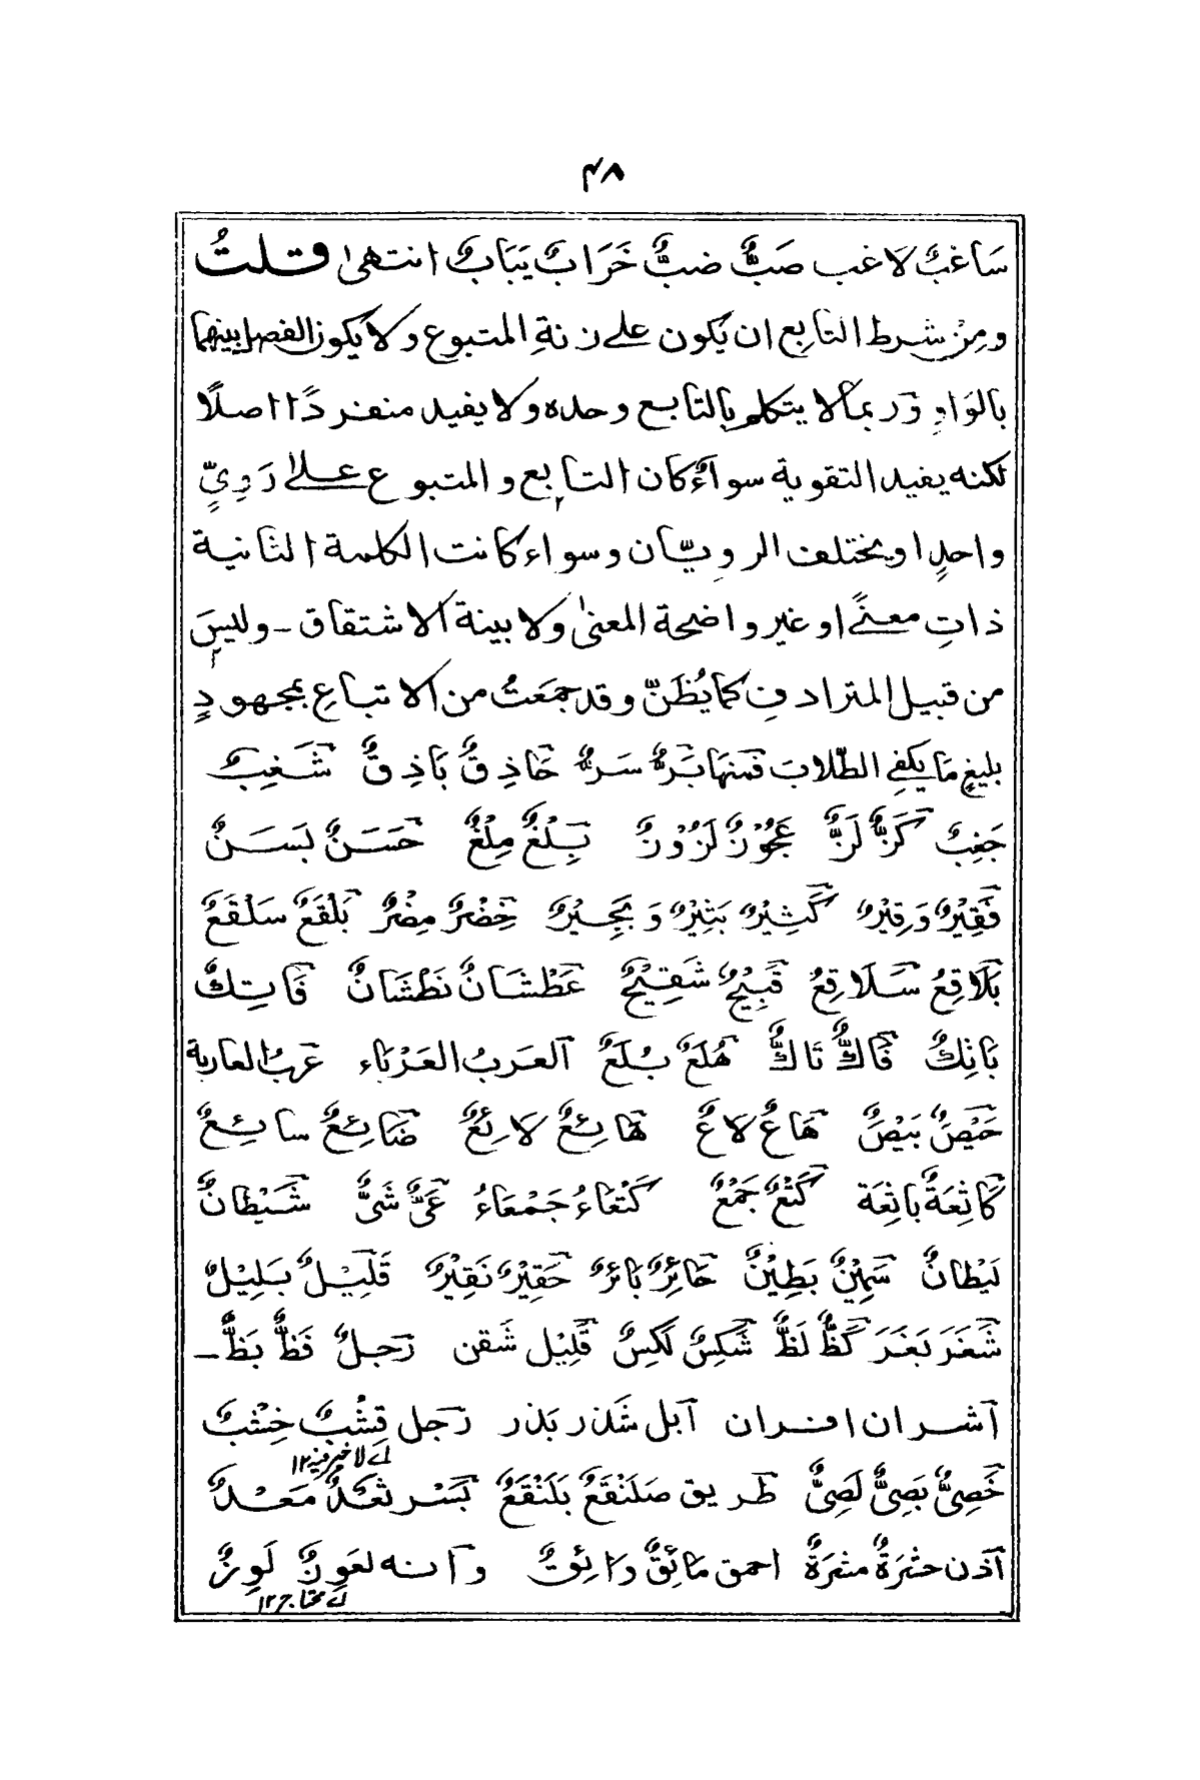 ۴۸
سَاغبٌ لاغب صَبٌّ ضبٌّ خَرَابٌ يَبَابٌ انتهىٰ قلتُ
ومِنْ شرط التابِع ان يكون على زنةِ المتبوع ولا يكون الفصل بينهما
بالوَاوِ وَربما لا يتكلم بالتابع وحده ولا يفيد منفردًا اصلًا
لكنه يفيد التقوية سواءٌ كان التابع والمتبوع على رَوِيٍّ
واحدٍ او يختلف الرويّان وسواء كانت الكلمة الثانية
ذاتِ معنًى او غير واضحة المعنىٰ ولا بينة الاشتقاق - وليسَ
من قبيل المترادفِ كما يُظَنّ وقد جمعَتُ من الاتباعِ بمجهودٍ
بليغٍ مَا يكفى الطّلابَ فمنها بَرٌّ سَرٌّ حَاذِقٌ بَاذِقٌ شَغِبٌ
جَغِبٌ كَزٌّ لَزٌّ عَجُوْزٌ لَزُوْزٌ بِلْغٌ مِلْغٌ حَسَنٌ بَسَنٌ
فَقِيْرٌ وَقِيْرٌ كَثِيْرٌ بَثِيْرٌ وَ بَجِيْرٌ خِضْرٌ مِضْرٌ بَلْقَعٌ سَلْقَعٌ
بَلَاقِعُ سَلَاقِعُ قَبِيْحٌ شَقِيْحٌ عَطْشَانٌ نَطْشَانٌ فَاتِكٌ
بَاتِكٌ فَاكٌّ تَاكٌّ هُلَعٌ بُلَعٌ العَرَبُ العَرْبَاء عَرَبُ العَاربة
حَيْصَ بَيْصَ هَاعٌ لَاعٌ هَائِعٌ لَائِعٌ ضَائِعٌ سائِعٌ
كَاثِعَةٌ بَاثِعَة كَتْعٌ جَمْعٌ كَتْعَاءُ جَمْعَاءُ عَىٌّ شَىٌّ شَيْطانٌ
لَيْطانٌ سَمِيْنٌ بَطِيْنٌ حَائِرٌ بَائرٌ حَقِيْرٌ نَقِيْرٌ قَلِيْلٌ بَلِيْلٌ
شَغَرَ بَغَرَ كَظٌّ لَظٌّ شَكِسٌ لَكِسٌ قَلِيْل شَقن رَجلٌ فَظٌّ بَظٌّ -
اَشران افران اَبل شَذر بَذر رَجل قِشْبٌ خِشْبٌ
اے لا خير فيه ١٢
خَصِىٌّ بَصِىٌّ لَصِىٌّ طَريق صَلَنْقَعٌ بَلَنْقَعٌ بُسْر ثَعْدٌ مَعْدٌ
اَذن حشرَةٌ مشرَةٌ احمق مَائِقٌ دَائِقٌ وَانه لعَوِزٌ لَوِزٌ
اے محتاج ١٢